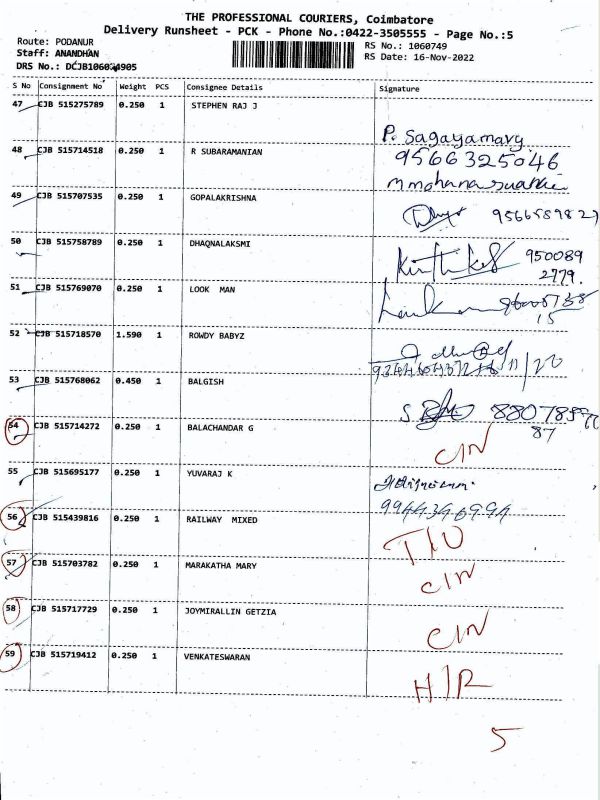 THE PROFESSIONAL COURIERS, Coimbatore
Delivery Runsheet - PCK - Phone No.:0422-3505555 - Page No.:5
Route: PODANUR
RS No.: 1060749
Staff: ANANDHAN
RS Date: 16-Nov-2022
DRS No.:
S No Consignment No Weight PCS Consignee Details Signature
47 CJB 515275789 0.250 1 STEPHEN RAJ J
P. Sagayamary
48 CJB 515714518 0.250 1 R SUBARAMANIAN
9566325046
49 CJB 515707535 0.250 1 GOPALAKRISHNA
50 CJB 515758789 0.250 1 DHAQNALAKSMI
950089
2779
51 CJB 515769070 0.250 1 LOOK MAN
15
52 CJB 515718570 1.590 1 ROWDY BABYZ
53 CJB 515768062 0.450 1 BALGISH
87
54 CJB 515714272 0.250 1 BALACHANDAR G
CIN
55 CJB 515695177 0.250 1 YUVARAJ K
56 CJB 515439816 0.250 1 RAILWAY MIXED
T/U
57 CJB 515703782 0.250 1 MARAKATHA MARY
CIN
58 CJB 515717729 0.250 1 JOYMIRALLIN GETZIA
CIN
59 CJB 515719412 0.250 1 VENKATESWARAN
H/R
5